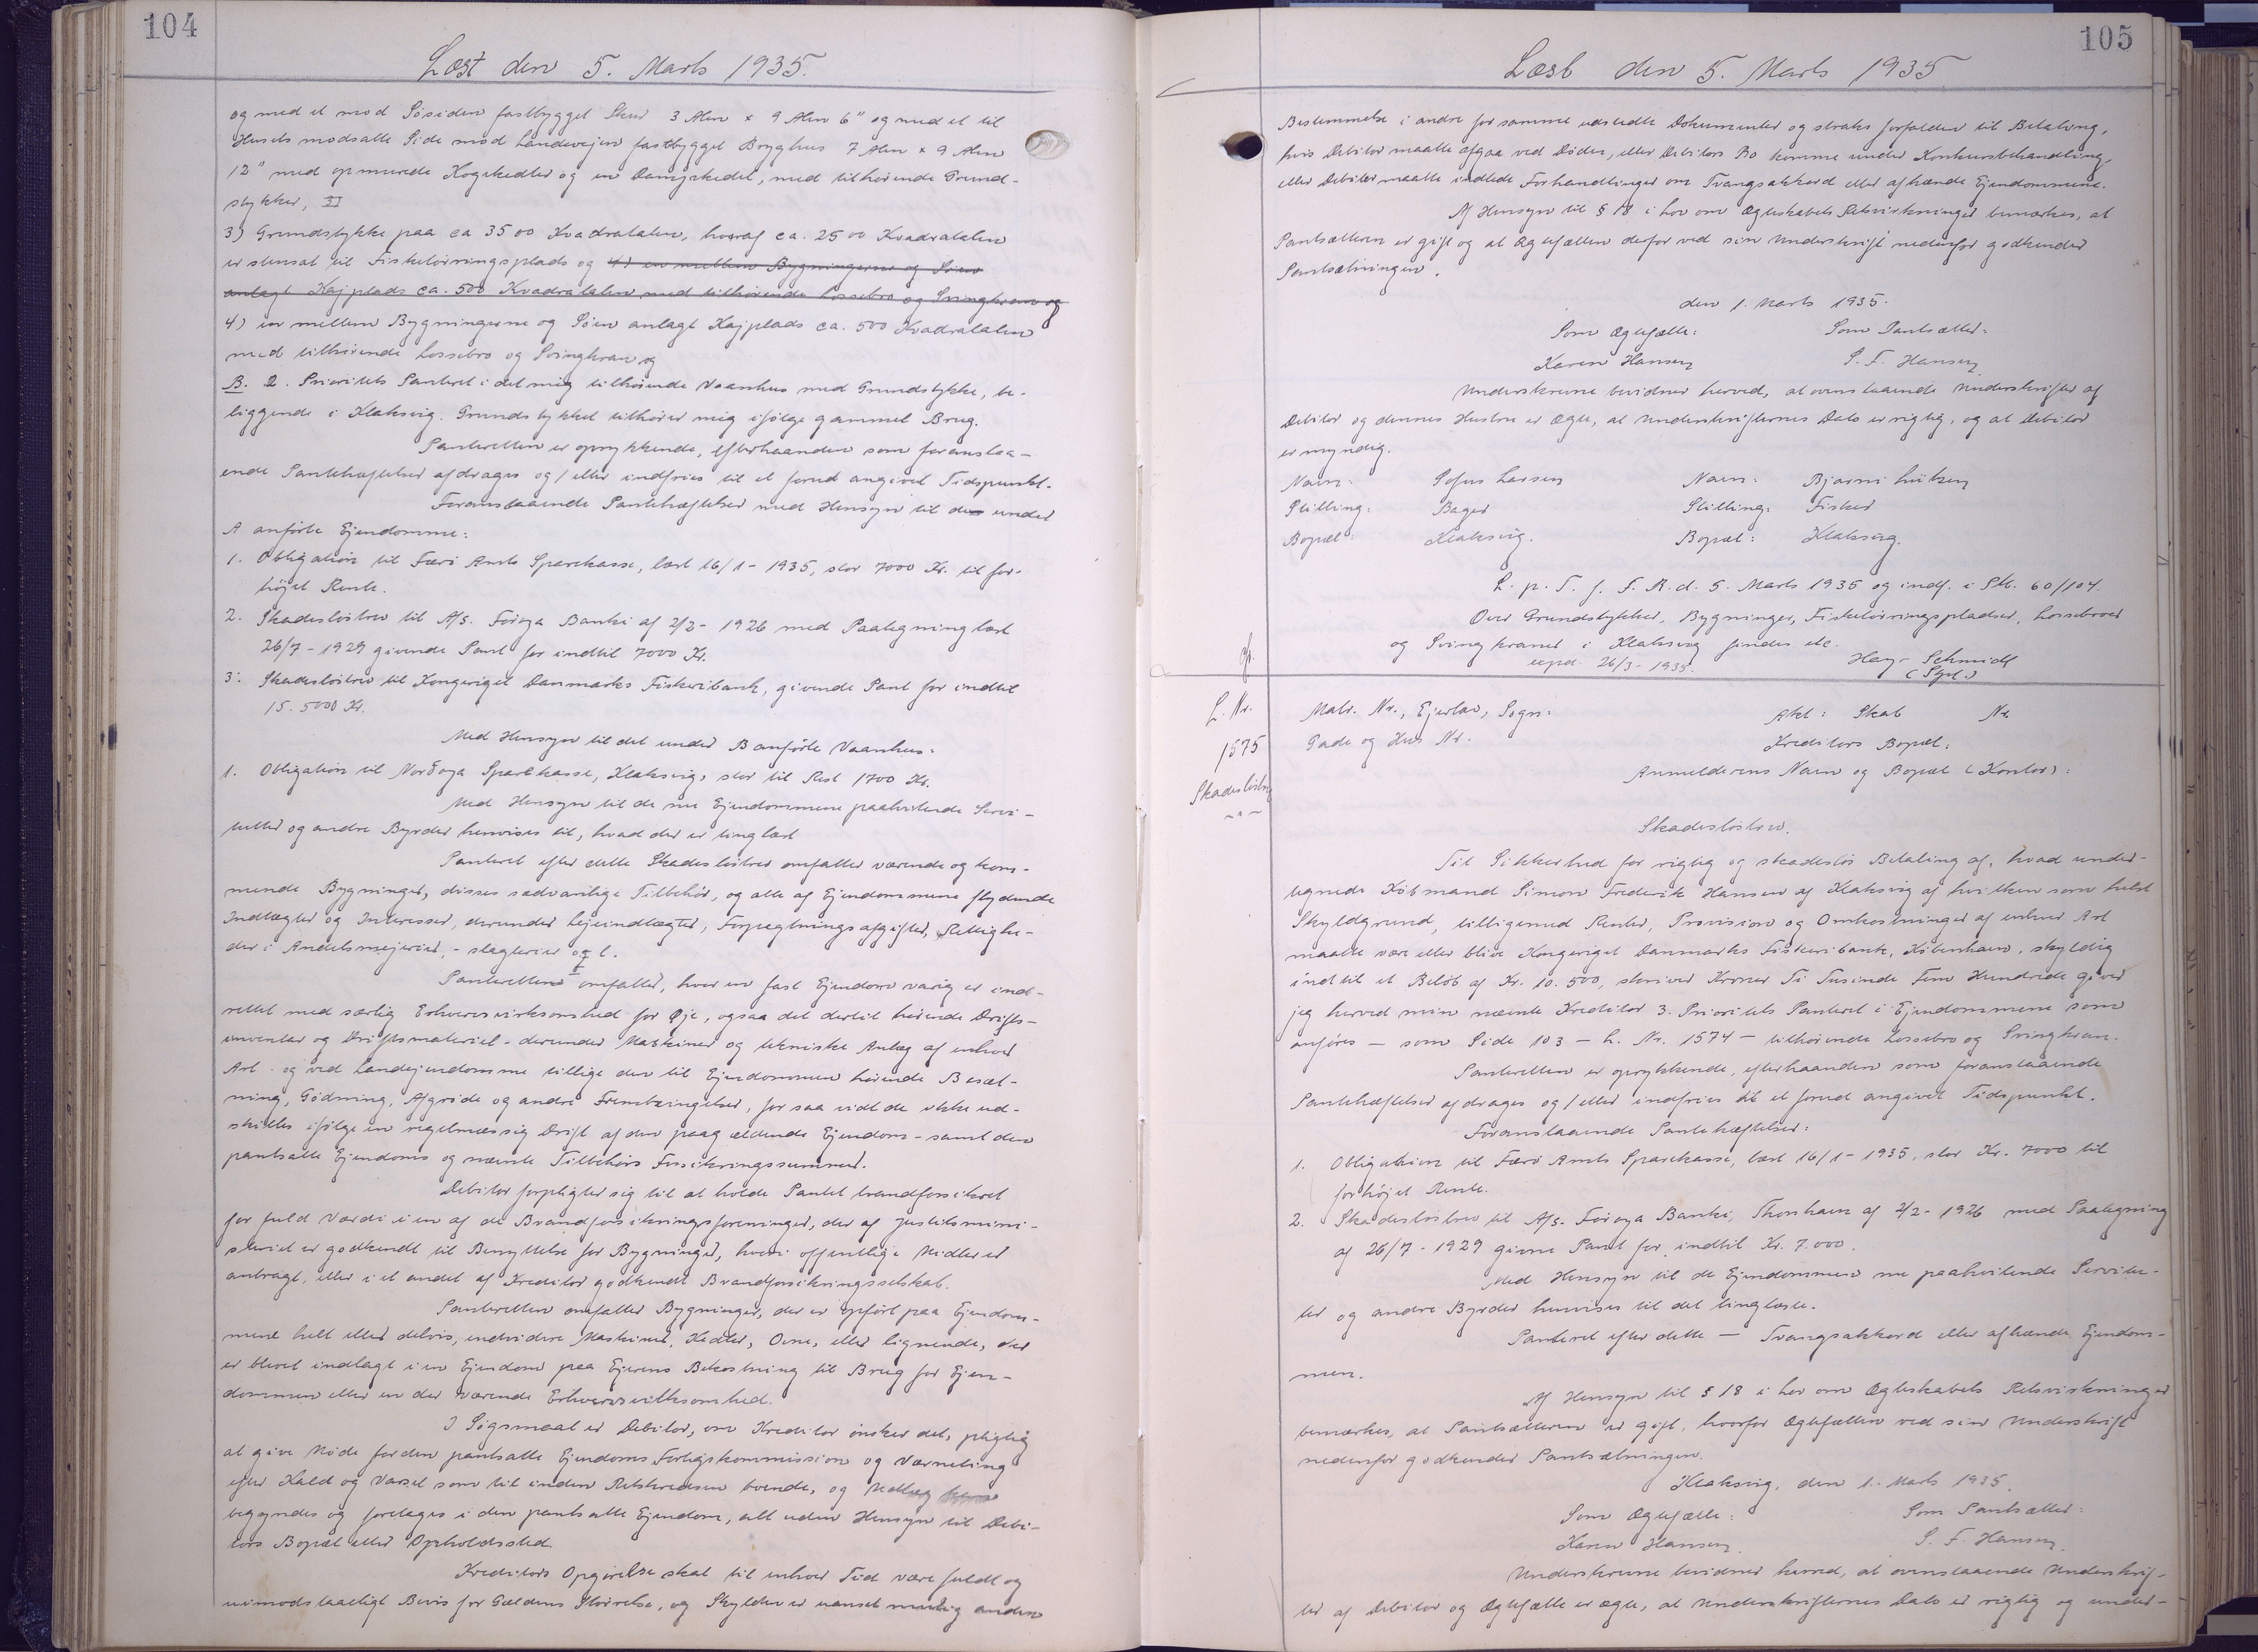 104
Læst den 5. Marts 1935.
og med et mod Søsiden fastbygget Skur 3 Alen x 9 Alen 6" og med et til
Husets modsatte Side mod Landevejen fastbygget Bryghus 7 Alen x 9 Alen
12" med opmurede Kogekedler og en Dampkedel, med tilhørende Grund-
stykker,
3) Grundstykke paa ca 3500 Kvadratalen, hvoraf ca. 2500 Kvadratalen
er stensat til Fisketørringsplads og 4) en mellem Bygningerne og Søen
anlagt Kajplads ca. 500 Kvadratalen med tilhørende Lossebro og Svingkran og
4) en mellem Bygningerne og Søen anlagt Kajplads ca. 500 Kvadratalen
med tilhørende Lossebro og Svingkran og
B. 2. Prioritets Panteret i det mig tilhørende Vaanhus med Grundstykke, be-
liggende i Klaksvig. Grundstykket tilhører mig ifølge gammel Brug.
Panteretten er oprykkende, efterhaanden som foranstaa-
ende Pantehæftelser afdrages og/eller indfries til et forud angivet Tidspunkt.
Foranstaaende Pantehæftelser med Hensyn til de under
A anførte Ejendomme:
1. Obligation til Færø Amts Sparekasse, læst 16/1-1935, stor 7000 Kr. til for-
højet Rente.
2. Skadesløsbrev til A/s. Føroya Banki af 2/2-1926 med Paategning læst
26/7-1929 givende Pant for indtil 7000 Kr.
3. Skadesløsbrev til Kongeriget Danmarks Fiskeribank, givende Pant for indtil
15.5000 Kr.
Med Hensyn til det under B anførte Vaanhus:
1. Obligation til Norðoya Sparekasse, Klaksvig, stor til Rest 1700 Kr.
Med Hensyn til de nu Ejendommene paahvilende Servi-
tutter og andre Byrder henvises til, hvad der er tinglæst
Panteret efter dette Skadesløsbrev omfatter værende og kom-
mende Bygninger, disses sædvanlige Tilbehør, og alle af Ejendommene flydende
Indtægter og Interesser, derunder Lejeindtægter, Forpagtningsafgifter, Rettighe-
der i Andelsmejerier, - slagterier o. l.
Panteretten omfatter, hvor en fast Ejendom varig er ind-
rettet med særlig Erhvervsvirksomhed for Øje, ogsaa det dertil hørende Drifts-
inventar og Driftsmateriel - derunder Maskiner og tekniske Anlæg af enhver
Art - og ved Landejendomme tillige den til Ejendommen hørende Besæt-
ning, Gødning, Afgrøde og andre Frembringelser, for saa vidt de ikke ud-
skilles ifølge en regelmæssig Drift af den paagældende Ejendom - samt den
pantsatte Ejendoms og nævnte Tilbehørs Forsikringssummer.
Debitor forpligter sig til at holde Pantet brandforsikret
for fuld Værdi i en af de Brandforsikringsforeninger, der af Justitsmini-
steriet er godkendt til Benyttelse for Bygninger, hvori offentlige Midler er
anbragt, eller i et andet af Kreditor godkendt Brandforsikringsselskab.
Panteretten omfatter Bygninger, der er opført paa Ejendom-
mene helt eller delvis, endvidere Maskiner, Kedler, Ovne, eller lignende, der
er blevet indlagt i en Ejendom paa Ejerens Bekostning til Brug for Ejen-
dommen eller en der værende Erhvervsvirksomhed.
I Søgsmaal er Debitor, om Kreditor ønsker det, pligtig
at give Møde for den pantsatte Ejendoms Forligskommission og Værneting
efter Kald og Varsel som til inden Retskredsen boende, og
begyndes og foretages i den pantsatte Ejendom, alt uden Hensyn til Debi-
tors Bopæl eller Opholdssted.
Kreditors Opgørelse skal til enhver Tid være fuldt og
uimodstaaeligt Bevis for Gældens Størrelse, og Skylden er uanset mulig anden
105
Læst den 5. Marts 1935
Bestemmelse i andre for samme udstedte Dokumenter og straks forfalden til Betaling,
hvis Debitor maatte afgaa ved Døden, eller Debitors Bo komme under Konkursbehandling,
eller Debitor maatte indlede Forhandlinger om Tvangsakkord eller afhænde Ejendommene.
Af Hensyn til § 18 i Lov om Ægteskabets Retsvirkninger bemærkes, at
Pantsætteren er gift og at Ægtefællen derfor ved sin Underskrift nedenfor godkender
Pantsætningen.
den 1. Marts 1935.
Som Ægtefælle: Som Pantsætter:
Karen Hansen S. F. Hansen
Underskrevne bevidner herved, at ovenstaaende Underskrifter af
Debitor og dennes Hustru er ægte, at Underskrifternes Dato er rigtig, og at Debitor
er myndig.
Navn: Sofus Larsen Navn: Bjarni
Stilling: Bager Stilling: Fisker
Bopæl: Klaksvig. Bopæl: Klaksvig.
L. p. T. f. F. R. d. 5. Marts 1935 og indf. i Skb. 60/104.
Over Grundstykker, Bygninger, Fisketørringspladser, Lossebroer
og Svingkraner i Klaksvig findes ele.
expd. 26/3-1935. Schmidt
L. Nr. Matr. Nr., Ejerlav, Sogn: Akt: Skab Nr.
1575 Gade og Hus Nr. Kreditors Bopæl:
Skadesløsbrev Anmelderens Navn og Bopæl (Kontor):
Skadesløsbrev.
Til Sikkerhed for rigtig og skadesløs Betaling af, hvad under-
tegnede Købmand Simon Frederik Hansen af Klaksvig af hvilken som helst
Skyldgrund, tilligemed Renter, Provision og Omkostninger af enhver Art
maatte være eller blive Kongeriget Danmarks Fiskeribank, København, skyldig
indtil et Beløb af Kr. 10.500, skriver Kroner Ti Tusinde Fem Hundrede giver
jeg herved min nævnte Kreditor 3. Prioritets Panteret i Ejendommene som
anføres — som Side 103 — L. Nr. 1574 — tilhørende Lossebro og Svingkran.
Panteretten er oprykkende, efterhaanden som foranstaaende
Pantehæftelser afdrages og/eller indfries til et forud angivet Tidspunkt.
Foranstaaende Pantehæftelser:
1. Obligation til Færø Amts Sparekasse, læst 16/1-1935, stor Kr. 7000 til
forhøjet Rente.
2. Skadesløsbrev til A/s. Føroya Banki, Thorshavn af 2/2-1926 med Paategning
af 26/7-1929 givne Pant for indtil Kr. 7.000.
Med Hensyn til de Ejendommen nu paahvilende Servitu-
ter og andre Byrder henvises til det tinglæste.
Panteret efter dette — Tvangsakkord eller afhænde Ejendom-
men.
Af Hensyn til § 18 i Lov om Ægteskabets Retsvirkninger
bemærkes, at Pantsætteren er gift, hvorfor Ægtefællen ved sin Underskrift
nedenfor godkender Pantsætningen.
Klaksvig, den 1. Marts 1935.
Som Ægtefælle: Som Pantsætter:
Karen Hansen. S. F. Hansen.
Underskrevne bevidner herved, at ovenstaaende Underskrif-
ter af Debitor og Ægtefælle er ægte, at Underskrifternes Dato er rigtig og under-